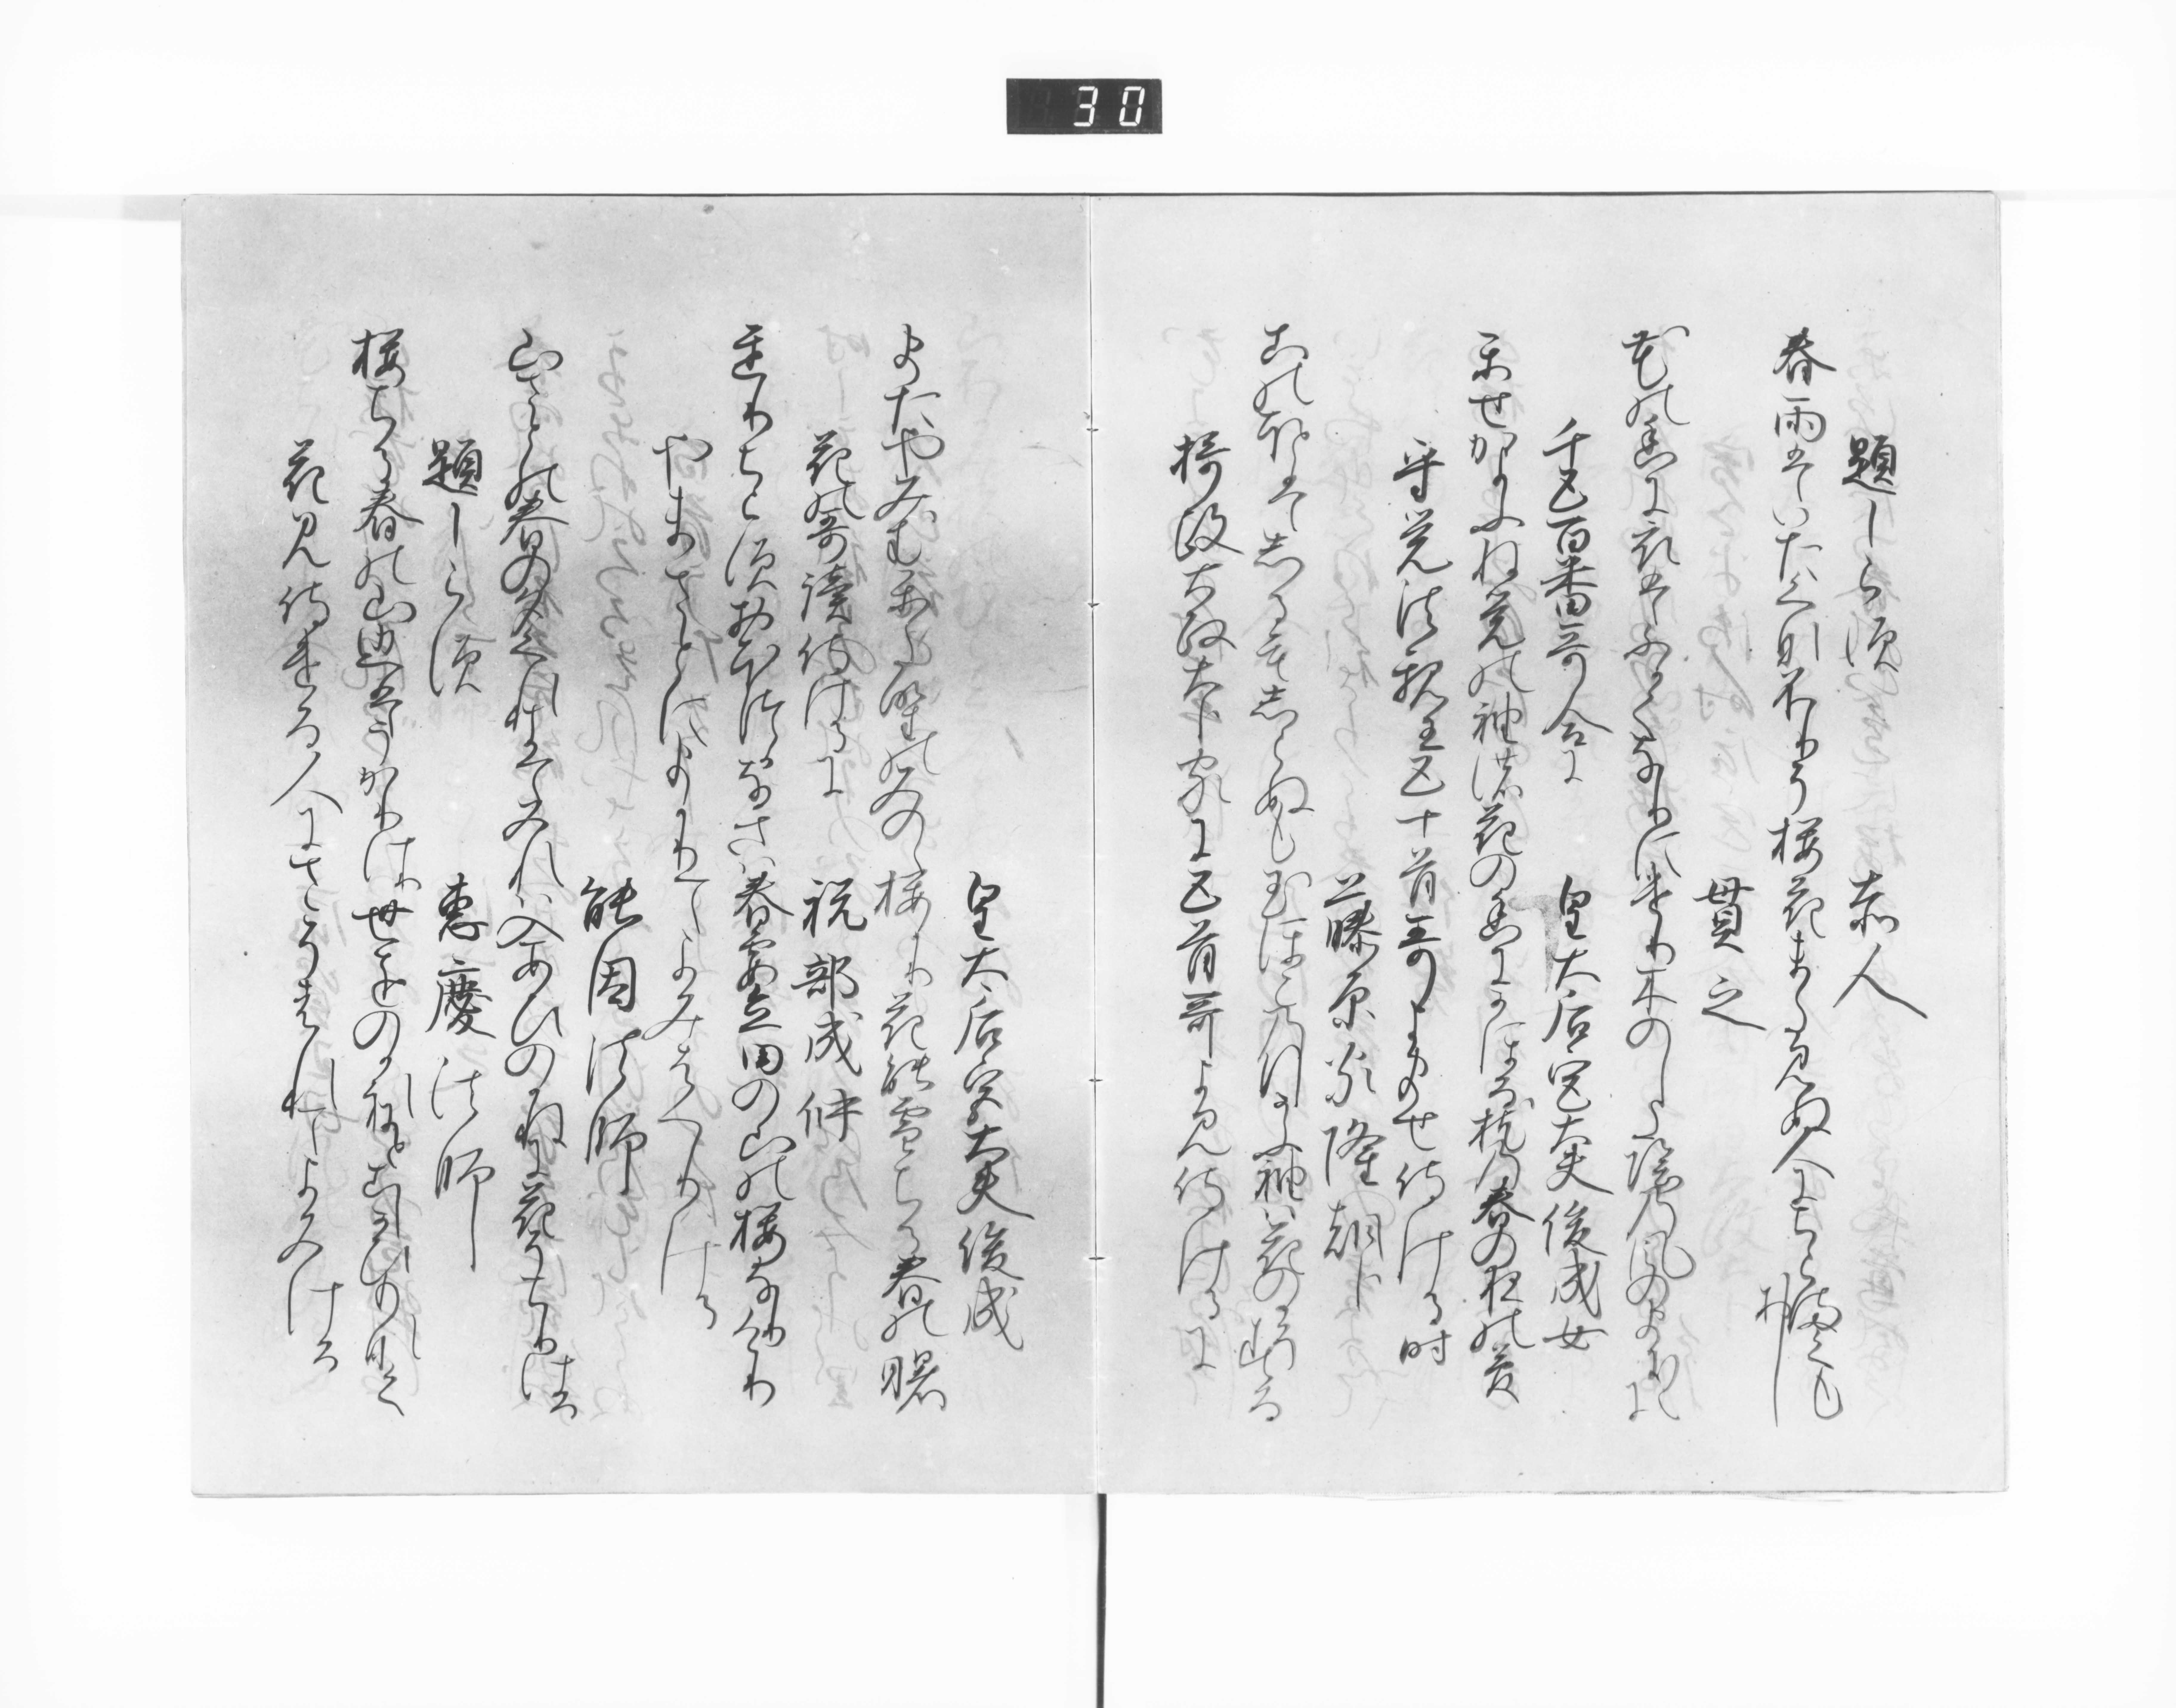 30
題しらす　赤人
春雨はいたくなふりそ桜花また見ぬ人にちらまくもおし
貫之
花の香に衣はふかくなりにけり木のした陰の風のまに〱
千五百番哥合に　皇太后宮大夫俊成女
風かよふね覚の袖の花の香にかほる枕の春の夜の夢
守覚法親王五十首哥よませ侍ける時
藤原家隆朝臣
このほとはしるもしらぬも玉ほこの行かふ袖は花のかそする
摂政太政大臣家に五首哥よみ侍けるに
皇太后宮大夫俊成
またやみむかたのゝみのゝ桜かり花の雪ちる春の曙
花の哥読侍けるに　祝部成仲
ちりちらすおほつかなきは春霞立田の山の桜なりけり
やまさとにまかりてよみ侍ける
能因法師
山さとの春の夕くれきてみれは入あひのかねに花そちりける
題しらす　恵慶法師
桜ちる春の山辺はうかりけり世をのかれにとこしかひもなく
花見侍ける人にさそはれてよみける